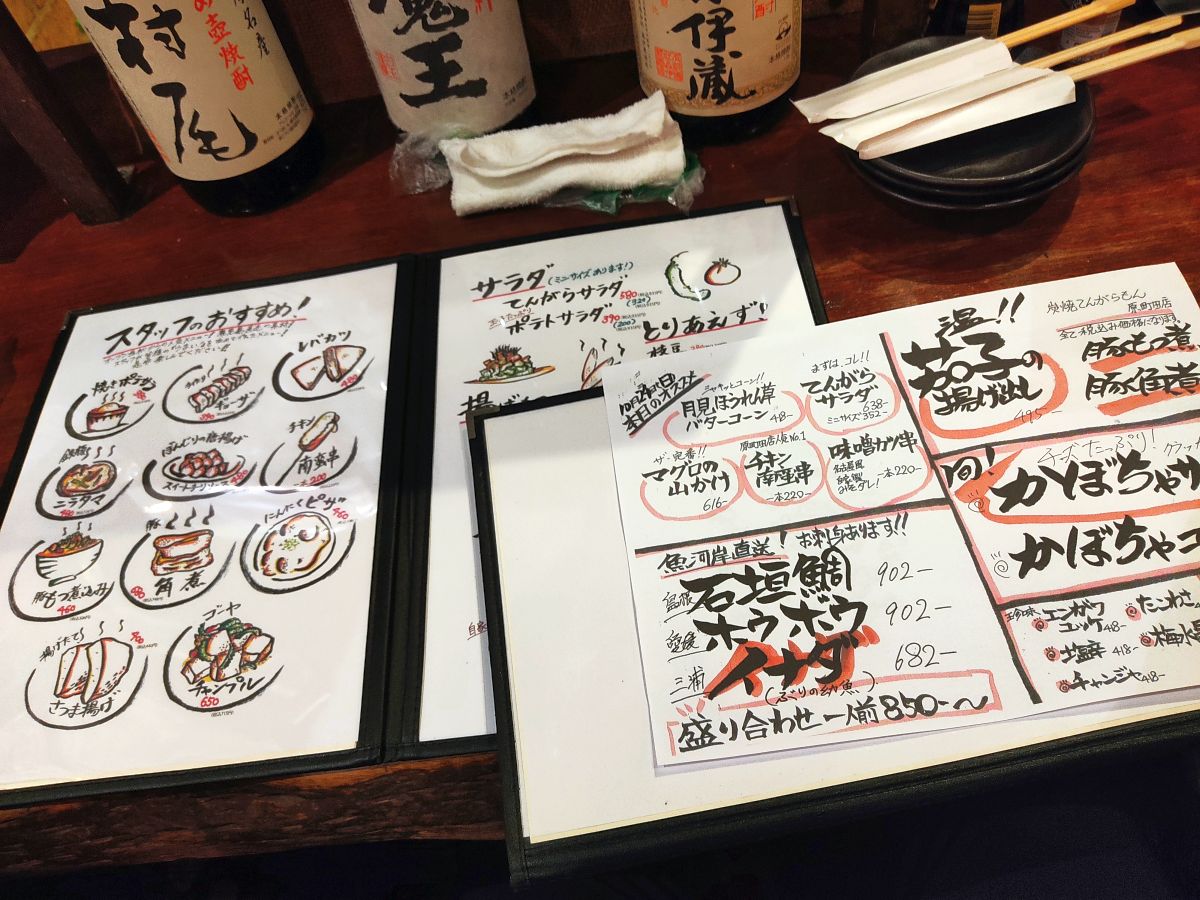 村尾
魔王
伊蔵
スタッフのおすすめ!
焼きポテサラ
ギョーザ
レバカツ
480
鉄板
ラタマ
480
ぼんじりの唐揚げ
スイートチリソース
チキン
南蛮串
200
豚もつ煮込み
460
豚
角煮
にんにくピザ
460
揚げたて
さつま揚げ
ゴーヤ
チャンプル
650
サラダ(ミニサイズあります!)
てんがらサラダ 580
(320)
ポテトサラダ 390
(200)
とりあえず!!
枝豆
10月24日(日)
本日のオススメ
シャキッとコーン!!
月見ほうれん草
バターコーン 418-
まずは、コレ!!
てんがら
サラダ
638-
ミニサイズ 352-
ザ・定番!!
マグロの
山かけ
616-
原町田店人気No.1
チキン
南蛮串
一本220-
味噌カツ串
名古屋風
一本220-
みそダレ!
魚河岸直送! お刺身あります!!
島根 石垣鯛 902-
愛媛 ホウボウ 902-
三浦 イナダ 682-
(ぶりの幼魚)
盛り合わせ一人前850-〜
温!!
茄子の
揚げ出し
495-
炭焼てんがらもん
原町田店
全て税込み価格になります。
豚もつ煮
豚角煮
チーズたっぷり!
旬!
かぼちゃサ
かぼちゃコ
珍味
エンガワ
ユッケ 418-
塩辛 418-
チャンジャ 418-
たこわさ
梅水晶